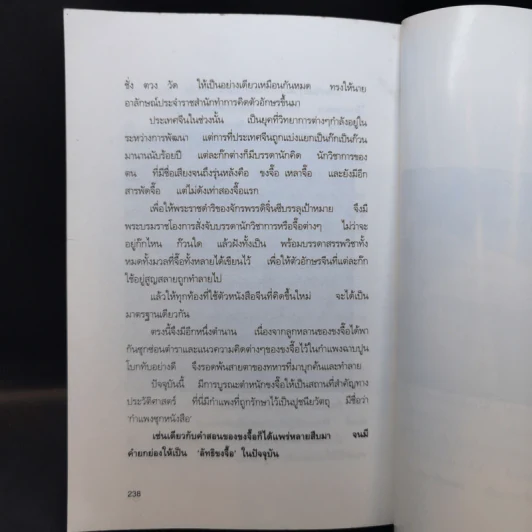 ชั่ง ตวง วัด ให้เป็นอย่างเดียวเหมือนกันหมด ทรงให้นาย
อาลักษณ์ประจำราชสำนักทำการคิดตัวอักษรขึ้นมา
ประเทศจีนในช่วงนั้น เป็นยุคที่วิทยาการต่างๆกำลังอยู่ใน
ระหว่างการพัฒนา แต่การที่ประเทศจีนถูกแบ่งแยกเป็นก๊กเป็นก๊วน
มานานนับร้อยปี แต่ละก๊กต่างก็มีบรรดานักคิด นักวิชาการของ
ตน ที่มีชื่อเสียงจนถึงรุ่นหลังคือ ขงจื๊อ เหลาจื๊อ และยังมีอีก
สารพัดจื๊อ แต่ไม่ดังเท่าสองจื๊อแรก
เพื่อให้พระราชดำริของจักรพรรดิจิ๋นซีบรรลุเป้าหมาย จึงมี
พระบรมราชโองการสั่งจับบรรดานักวิชาการหรือจื๊อต่างๆ ไม่ว่าจะ
อยู่ก๊กไหน ก๊วนใด แล้วฝังทั้งเป็น พร้อมบรรดาสรรพวิชาทั้ง
หมดทั้งมวลที่จื๊อทั้งหลายได้เขียนไว้ เพื่อให้ตัวอักษรจีนที่แต่ละก๊ก
ใช้อยู่สูญสลายถูกทำลายไป
แล้วให้ทุกท้องที่ใช้ตัวหนังสือจีนที่คิดขึ้นใหม่ จะได้เป็น
มาตรฐานเดียวกัน
ตรงนี้จึงมีอีกหนึ่งตำนาน เนื่องจากลูกหลานของขงจื๊อได้พา
กันซุกซ่อนตำราและแนวความคิดต่างๆของขงจื๊อไว้ในกำแพงฉาบปูน
โบกทับอย่างดี จึงรอดพ้นสายตาของทหารที่มาบุกค้นและทำลาย
ปัจจุบันนี้ มีการบูรณะตำหนักขงจื๊อให้เป็นสถานที่สำคัญทาง
ประวัติศาสตร์ ที่นี่มีกำแพงที่ถูกรักษาไว้เป็นปูชนียวัตถุ มีชื่อว่า
'กำแพงซุกหนังสือ'
เช่นเดียวกับคำสอนของขงจื๊อก็ได้แพร่หลายสืบมา จนมี
คำยกย่องให้เป็น 'ลัทธิขงจื๊อ' ในปัจจุบัน
238